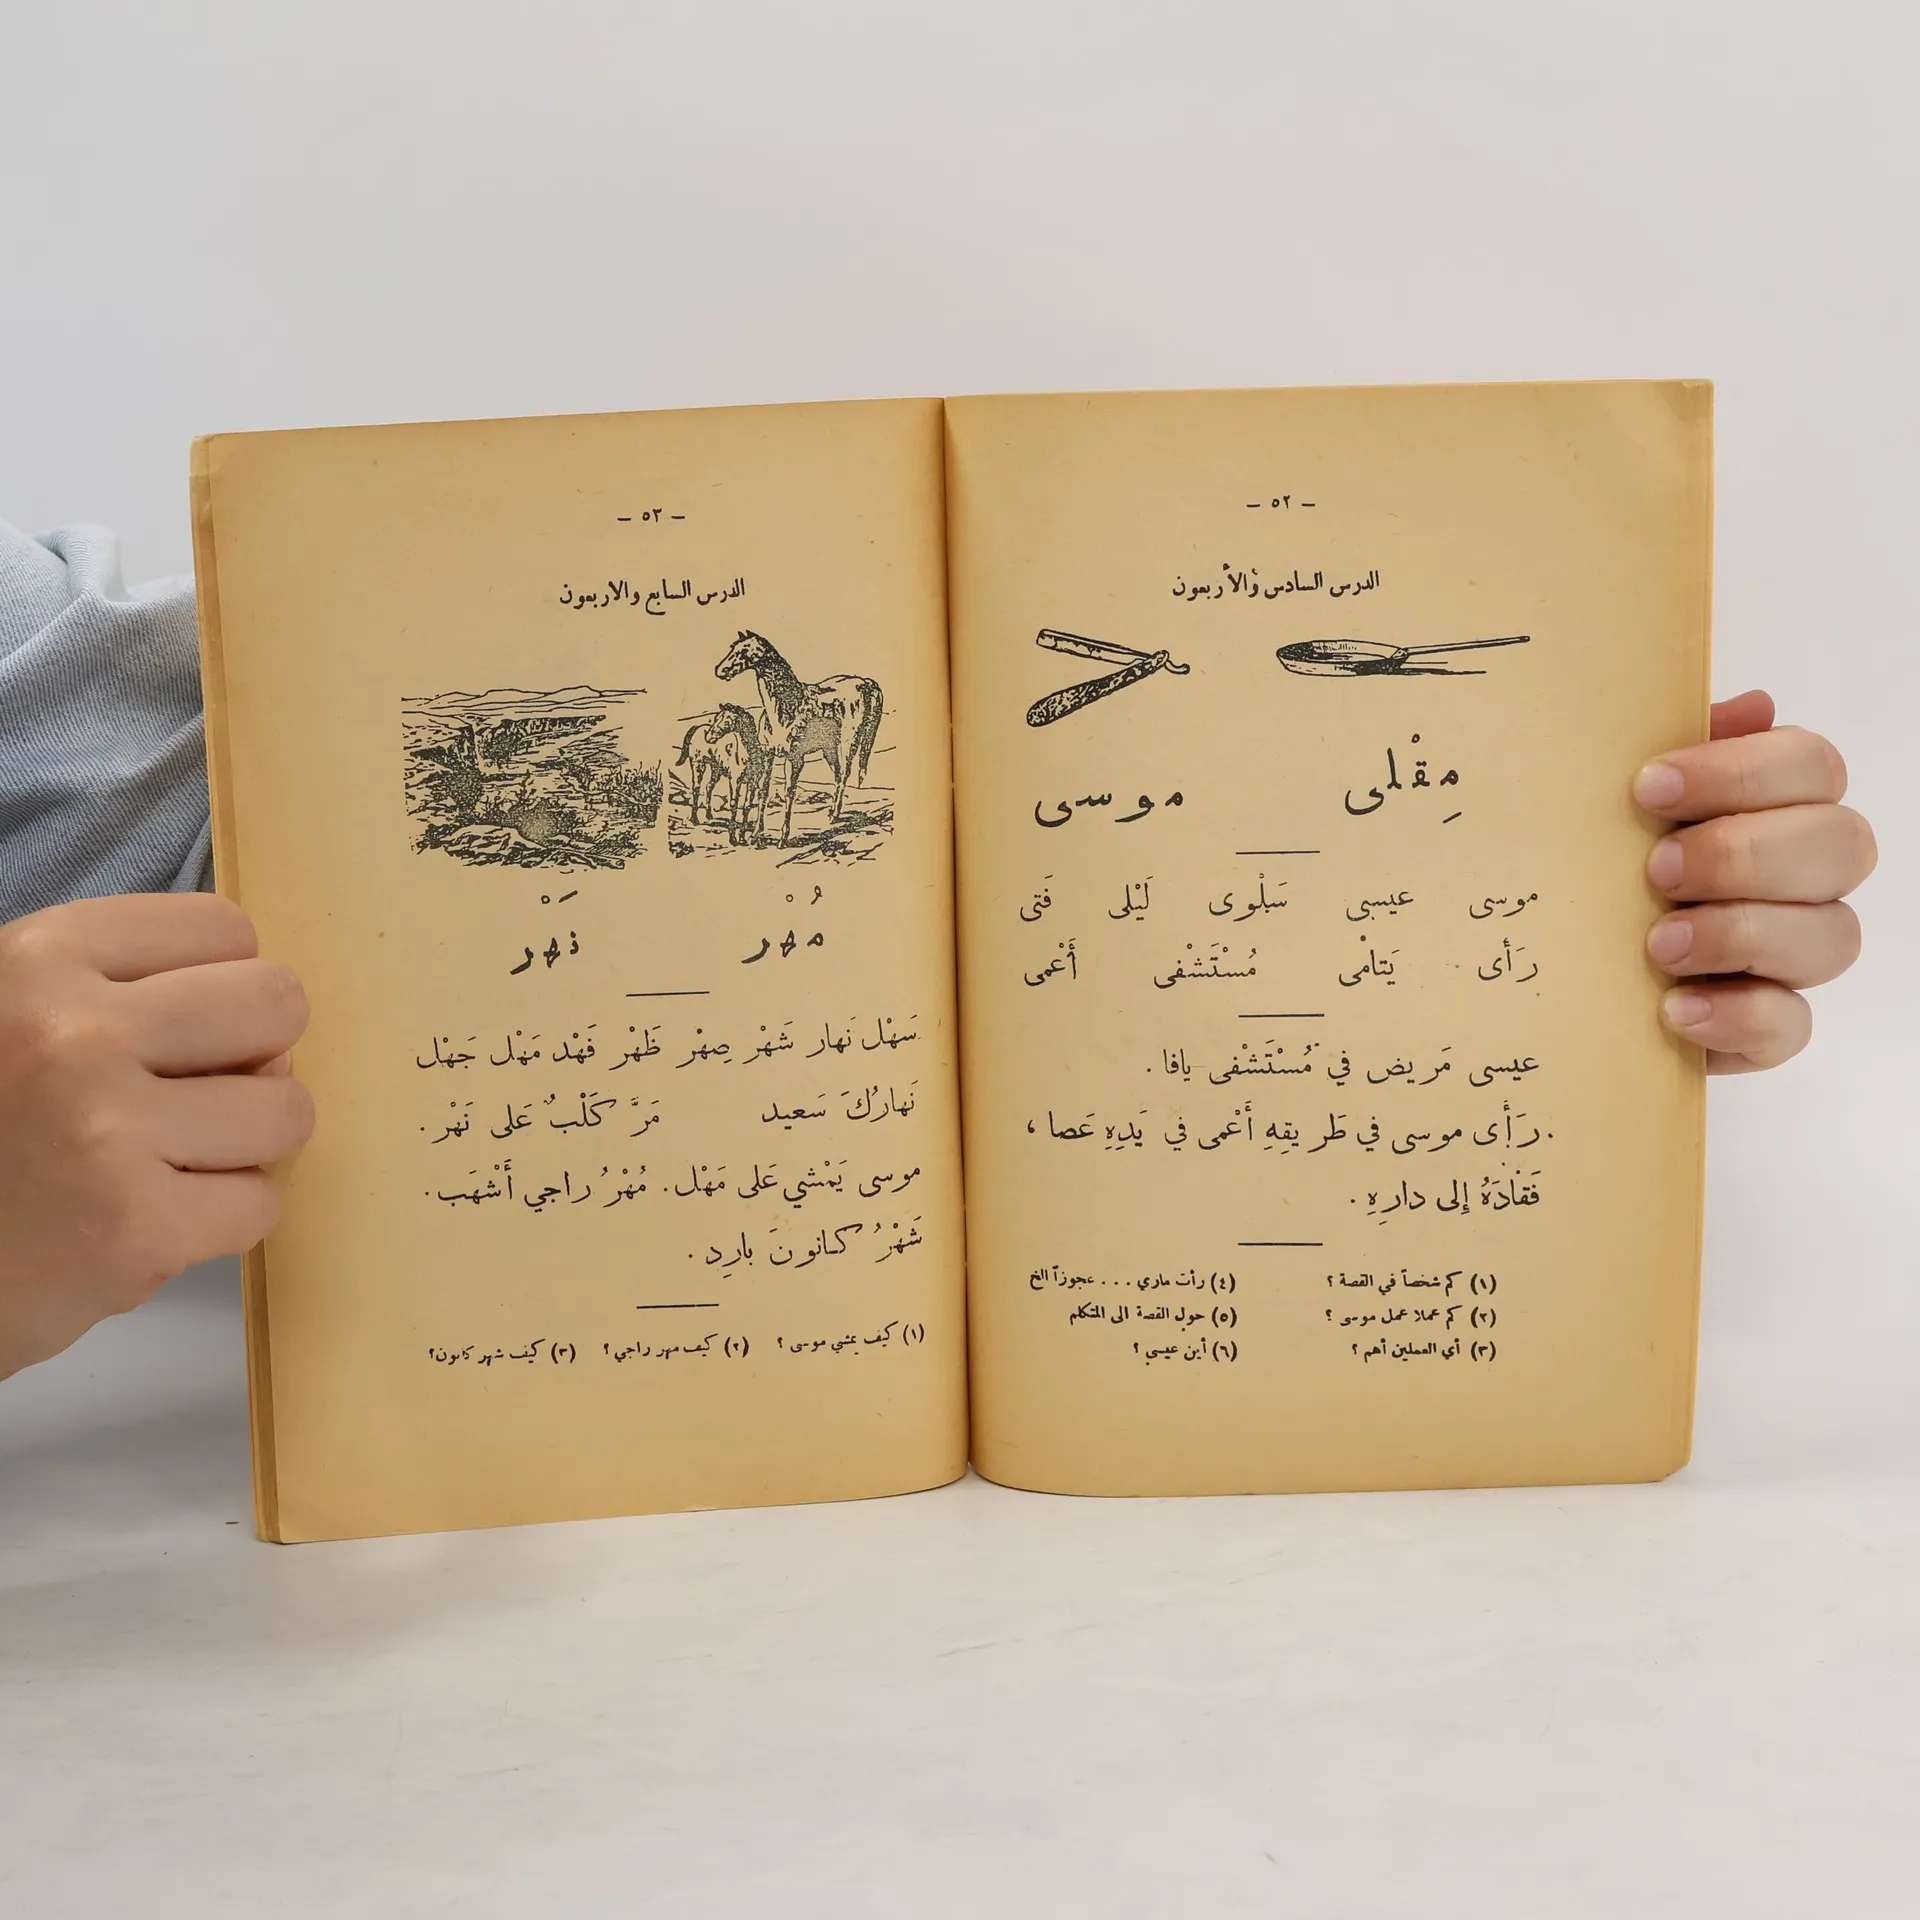 – ٥٢ –
الدرس السادس والأربعون
مِقْلى موسى
موسى عيسى سَلْوى لَيْلى فَتى
رَأى يَتامْى مُسْتَشْفى أَعْمى
عيسى مَريض في مُسْتَشْفى يافا .
رَأى موسى في طَريقِهِ أَعْمى في يَدِهِ عَصا ،
فَقادَهُ إِلى دارِهِ .
(١) كم شخصاً في القصة ؟ (٤) رأت ماري . . . عجوزاً الخ
(٢) كم عملا عمل موسى ؟ (٥) حول القصة الى المتكلم
(٣) أي العملين أهم ؟ (٦) أين عيسى ؟
– ٥٣ –
الدرس السابع والاربعون
مُهْر نَهْر
سَهْل نَهار شَهْر صِهْر ظَهْر فَهْد مَهْل جَهْل
نَهارُكَ سَعيد مَرَّ كَلْبٌ عَلى نَهْر .
موسى يَمْشي عَلى مَهْل . مُهْرُ راجي أَشْهَب .
شَهْرُ كانونَ بارِد .
(١) كيف يمشي موسى ؟ (٢) كيف مهر راجي ؟ (٣) كيف شهر كانون؟